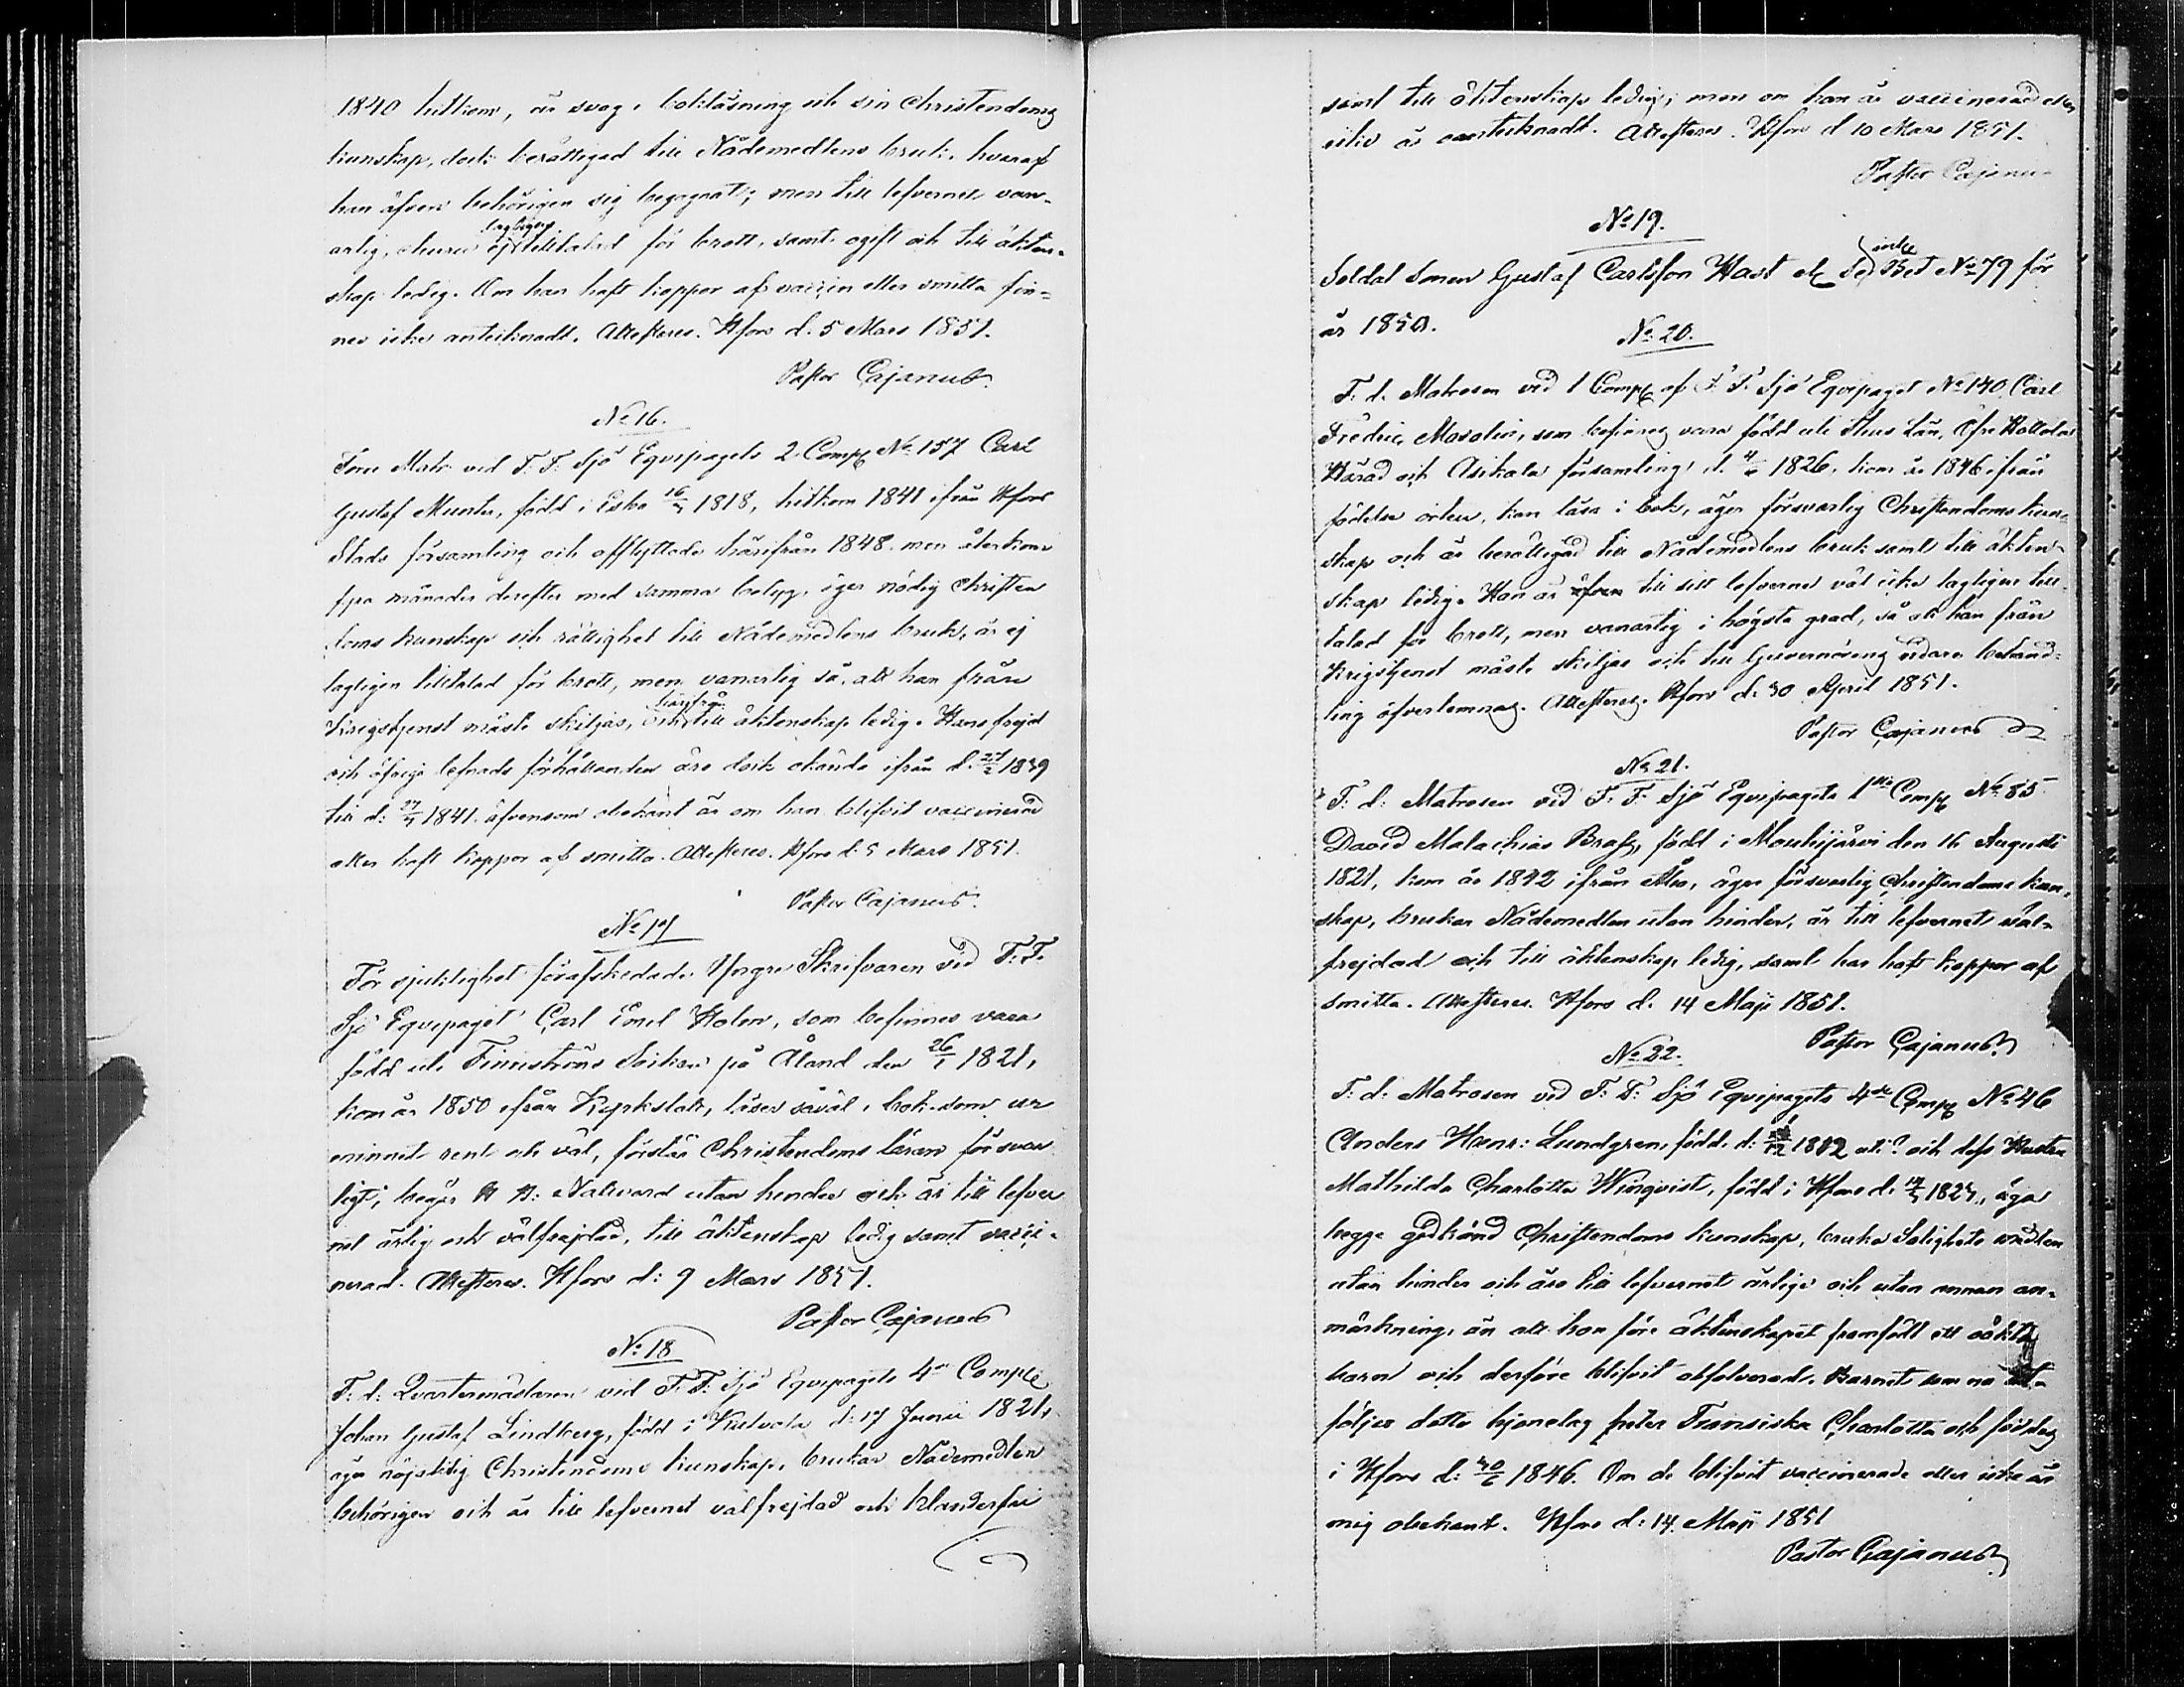 1840 hitkom, är svag i bokläsning och sin Christendoms
kunskap, dock berättigad till Nådemedlens bruk, hvaraf
han äfven behörigen sig begagnat; men till lefvernet van-
artig, churu ej lagligen tilltalad för brott, samt ogift och till äkten-
skap ledig. Om han haft koppor af vaccin eller smitta fin-
nes icke antecknadt. Attesteras. Hfors d. 5 Mars 1851.
Pastor Cajanus.
No 16.
Förre Matr. vid F. F. Sjö Equipagets 2 Comp. No 157 Carl
Gustaf Munter, född i Esbo 16/3 1818, hitkom 1841 ifrån Hfors
Stads församling och afflyttade härifrån 1848. men återkom
fyra månader derefter med samma betyg, äger nödig Christen
doms kunskap och rättighet till Nådemedlens bruk, är ej
lagligen tilltalad för brott, men vanartig så, att han från
Krigstjenst måste skiljas, och härifrån till äktenskap ledig. Hans frejd
och öfriga lefnads förhållanden äro dock okände ifrån d. 27/2 1839
till d: 27/7 1841. äfvensom obekant är om han blifvit vaccinerad
eller haft koppor af smitta. Attesteras. Hfors d. 5 Mars 1851.
Pastor Cajanus.
No 17
För sjuklighet förafskedade Yngre Skrifvaren vid F. F.
Sjö Equipaget Carl Emil Holm, som befinnes vara
född uti Finnströms Socken på Åland den 26/1 1821,
kom år 1850 ifrån Kyrkslätt, läser såväl i bok som ur
minnet rent och väl, förstår Christendoms läran försvar
ligt, begår H. H. Nattvard utan hinder och är till lefver
net ärlig och välfrejdad, till äktenskap ledig samt vacci-
nerad. Attesteras. Hfors d: 9 Mars 1851.
Pastor Cajanus
No 18
F. d: Qvartermästaren vid F. F. Sjö Equipagets 4de Comp.
Johan Gustaf Lindberg, född i d: 17 Junii 1821,
äger nöjaktig Christendoms kunskap, brukar Nådemedlen
behörigen och är till lefvernet välfrejdad och klanderfri
samt till äktenskap ledig; men om han är vaccinerad eller
icke är oantecknadt. Attesteras. Hfors d 10 Mars 1851.
Pastor Cajanus
No 19.
Soldat Sonen Gustaf Carlsson Hast Bet No 79 för
år 1850.
No 20.
F. d. Matrosen vid 1 Comp. af F. F. Sjö Equipaget No 140 Carl
Fredric Masalin, som befinnes vara född uti Thus Län, Öfre Hollola
Härad och Asikkala församling, d. 1826, kom år 1846 ifrån
födelse orten, kan läsa i bok, äger försvarlig Christendoms kun-
skap och är berättigad till Nådemedlens bruk samt till äkten-
skap ledig. Han är äfven till sitt lefverne väl icke lagligen till-
talad för brott, men vanartig i högsta grad, så att han från
Krigstjenst måste skiljas och till Guvernörens vidare behand-
ling öfverlemnas. Attesteras. Hfors d: 30 April 1851.
Pastor Cajanus
No 21.
F. d: Matrosen vid F. F. Sjö Equipagets 1sta Comp. No 85
David Malachias Brask, född i Mouhijärvi den 16 Augusti
1821, kom år 1842 ifrån Åbo, äger försvarlig Christendoms kun-
skap, brukar Nådemedlen utan hinder, är till lefvernet väl-
frejdad och till äktenskap ledig, samt har haft koppor af
smitta. Attesteras. Hfors d. 14 Maji 1851.
Pastor Cajanus
No 22.
F. d: Matrosen vid F. F. Sjö Equipagets 4de Comp. No 46
Anders Henr: Lundgren, född d: 1812 uti? och dess Hustru
Mathilda Charlotta Winqvist, född i Hfors d: 14/3 1823, äga
begge godkänd Christendoms kunskap, bruka Salighets medlen
utan hinder och äro till lefvernet ärlige och utan annan an-
märkning, än att hon före äktenskapet framfödt ett oäkta
barn och derföre blifvit absolverad. Barnet som nu åt-
följer detta hjonelag heter Fransiska Charlotta och föddes
i Hfors d: 30/6 1846. Om de blifvit vaccinerade eller icke är
mig obekant. Hfors d: 14. Maji 1851
Pastor Cajanus